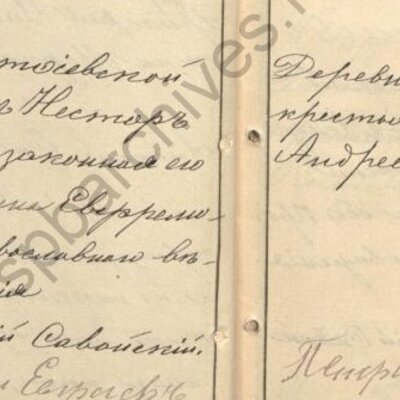 тоіевской
ъ Несторъ
законная его
на Евфремо-
вославнаго вѣ-
ія
ій Савойскій.
Деревн
кресть
Андрее
Петр
spbarchives.r